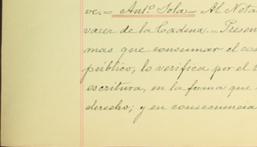 ve.— Ant.º Sola.— Al Nota
varez de la Cadena.— Presen
mas que consumar el
público, lo verifica por el
escritura, en la forma que
derecho; y en consecuencia